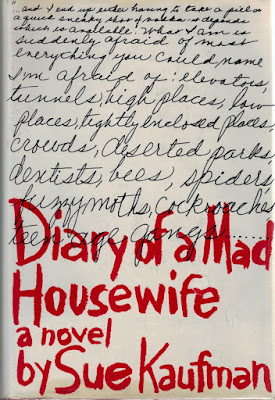 "... and I end up either having to take a pill or
a quick sneaky shot of vodka - depends
which is available. What I am is
suddenly afraid of most
everything you could name
I'm afraid of: elevators,
tunnels, high places, low
places, tightly enclosed places
crowds, deserted parks
dentists, bees, spiders
fuzzy moths, cockroaches
teen-age gangs........
Diary of a Mad
Housewife
a novel
by Sue Kaufman